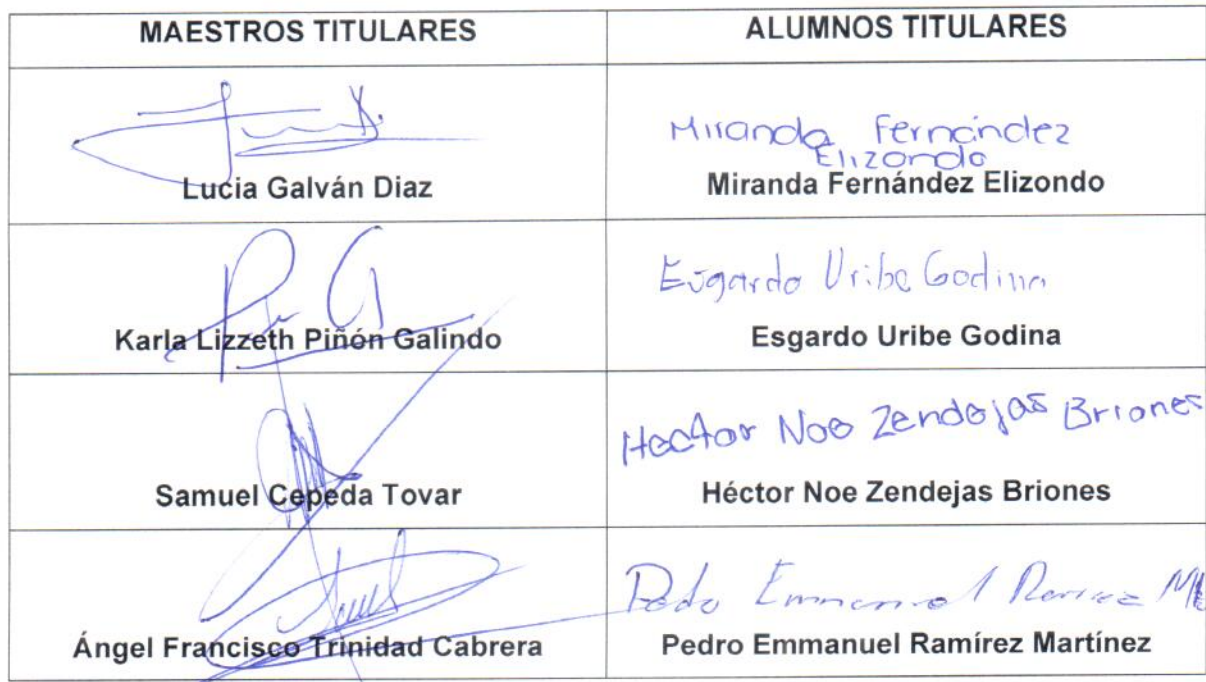 MAESTROS TITULARES
ALUMNOS TITULARES
Lucia Galván Diaz
Miranda Fernández
Elizondo
Miranda Fernández Elizondo
Karla Lizzeth Piñón Galindo
Esgardo Uribe Godina
Esgardo Uribe Godina
Samuel Cepeda Tovar
Hector Noe Zendejas Briones
Héctor Noe Zendejas Briones
Ángel Francisco Trinidad Cabrera
Pedro Emmanuel Ramirez
Pedro Emmanuel Ramírez Martínez